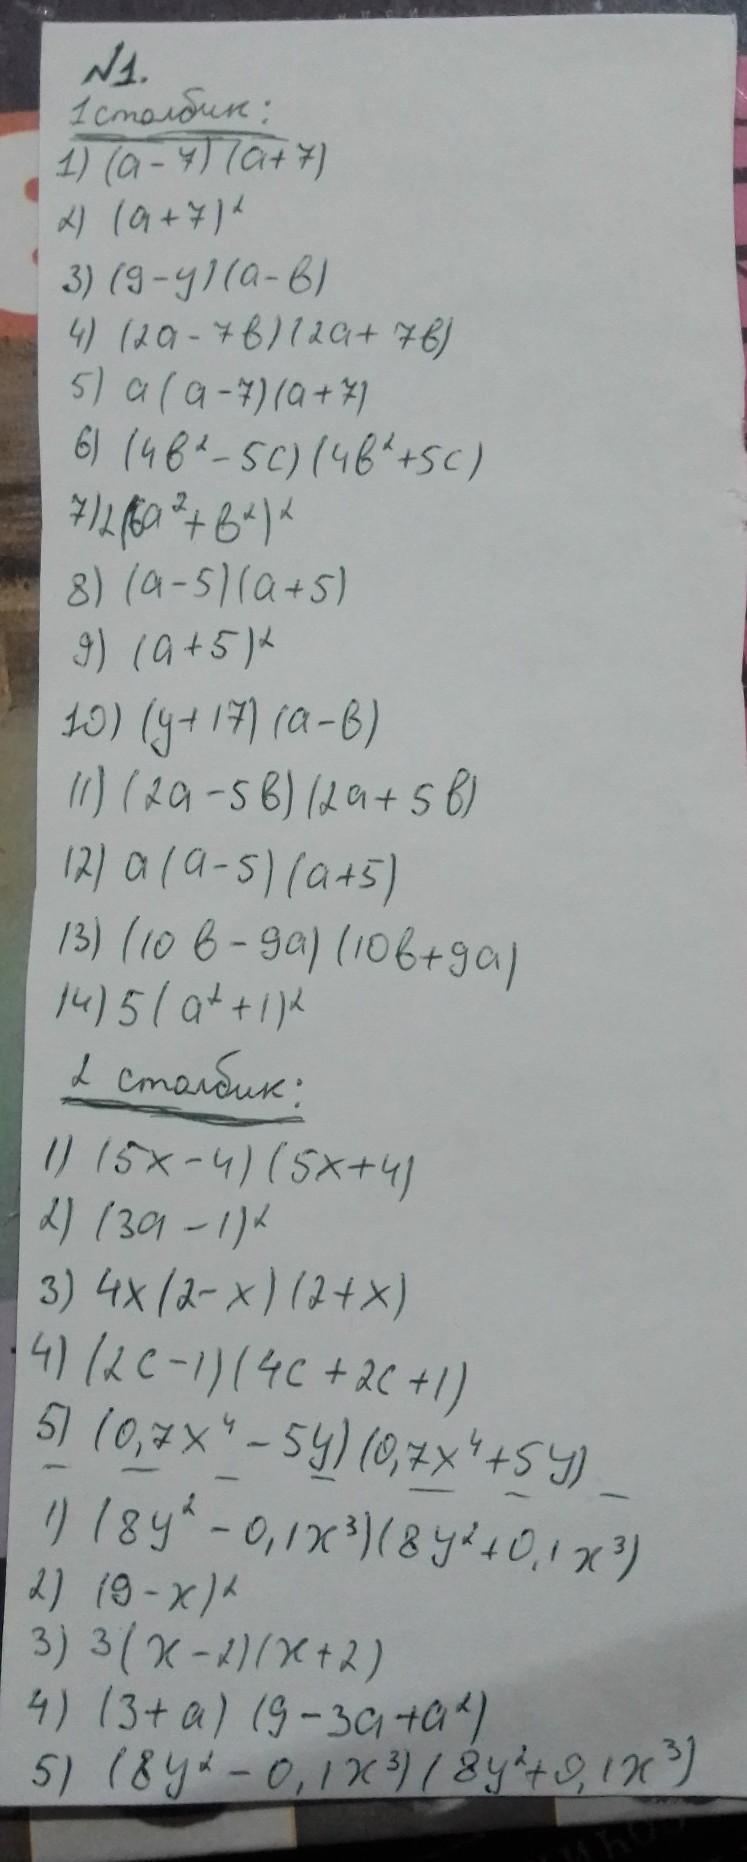 №1.
1 столбик:
1) (a-7)(a+7)
2) (a+7)²
3) (9-y)(a-в)
4) (2a-7в)(2a+7в)
5) a(a-7)(a+7)
6) (4в²-5c)(4в²+5c)
7) 2(6a²+в²)²
8) (a-5)(a+5)
9) (a+5)²
10) (y+17)(a-в)
11) (2a-5в)(2a+5в)
12) a(a-5)(a+5)
13) (10в-9a)(10в+9a)
14) 5(a²+1)²
2 столбик:
1) (5x-4)(5x+4)
2) (3a-1)²
3) 4x(2-x)(2+x)
4) (2c-1)(4c+2c+1)
5) (0,7x⁴-5y)(0,7x⁴+5y)
1) (8y²-0,1x³)(8y²+0,1x³)
2) (9-x)²
3) 3(x-2)(x+2)
4) (3+a)(9-3a+a²)
5) (8y²-0,1x³)(8y²+0,1x³)